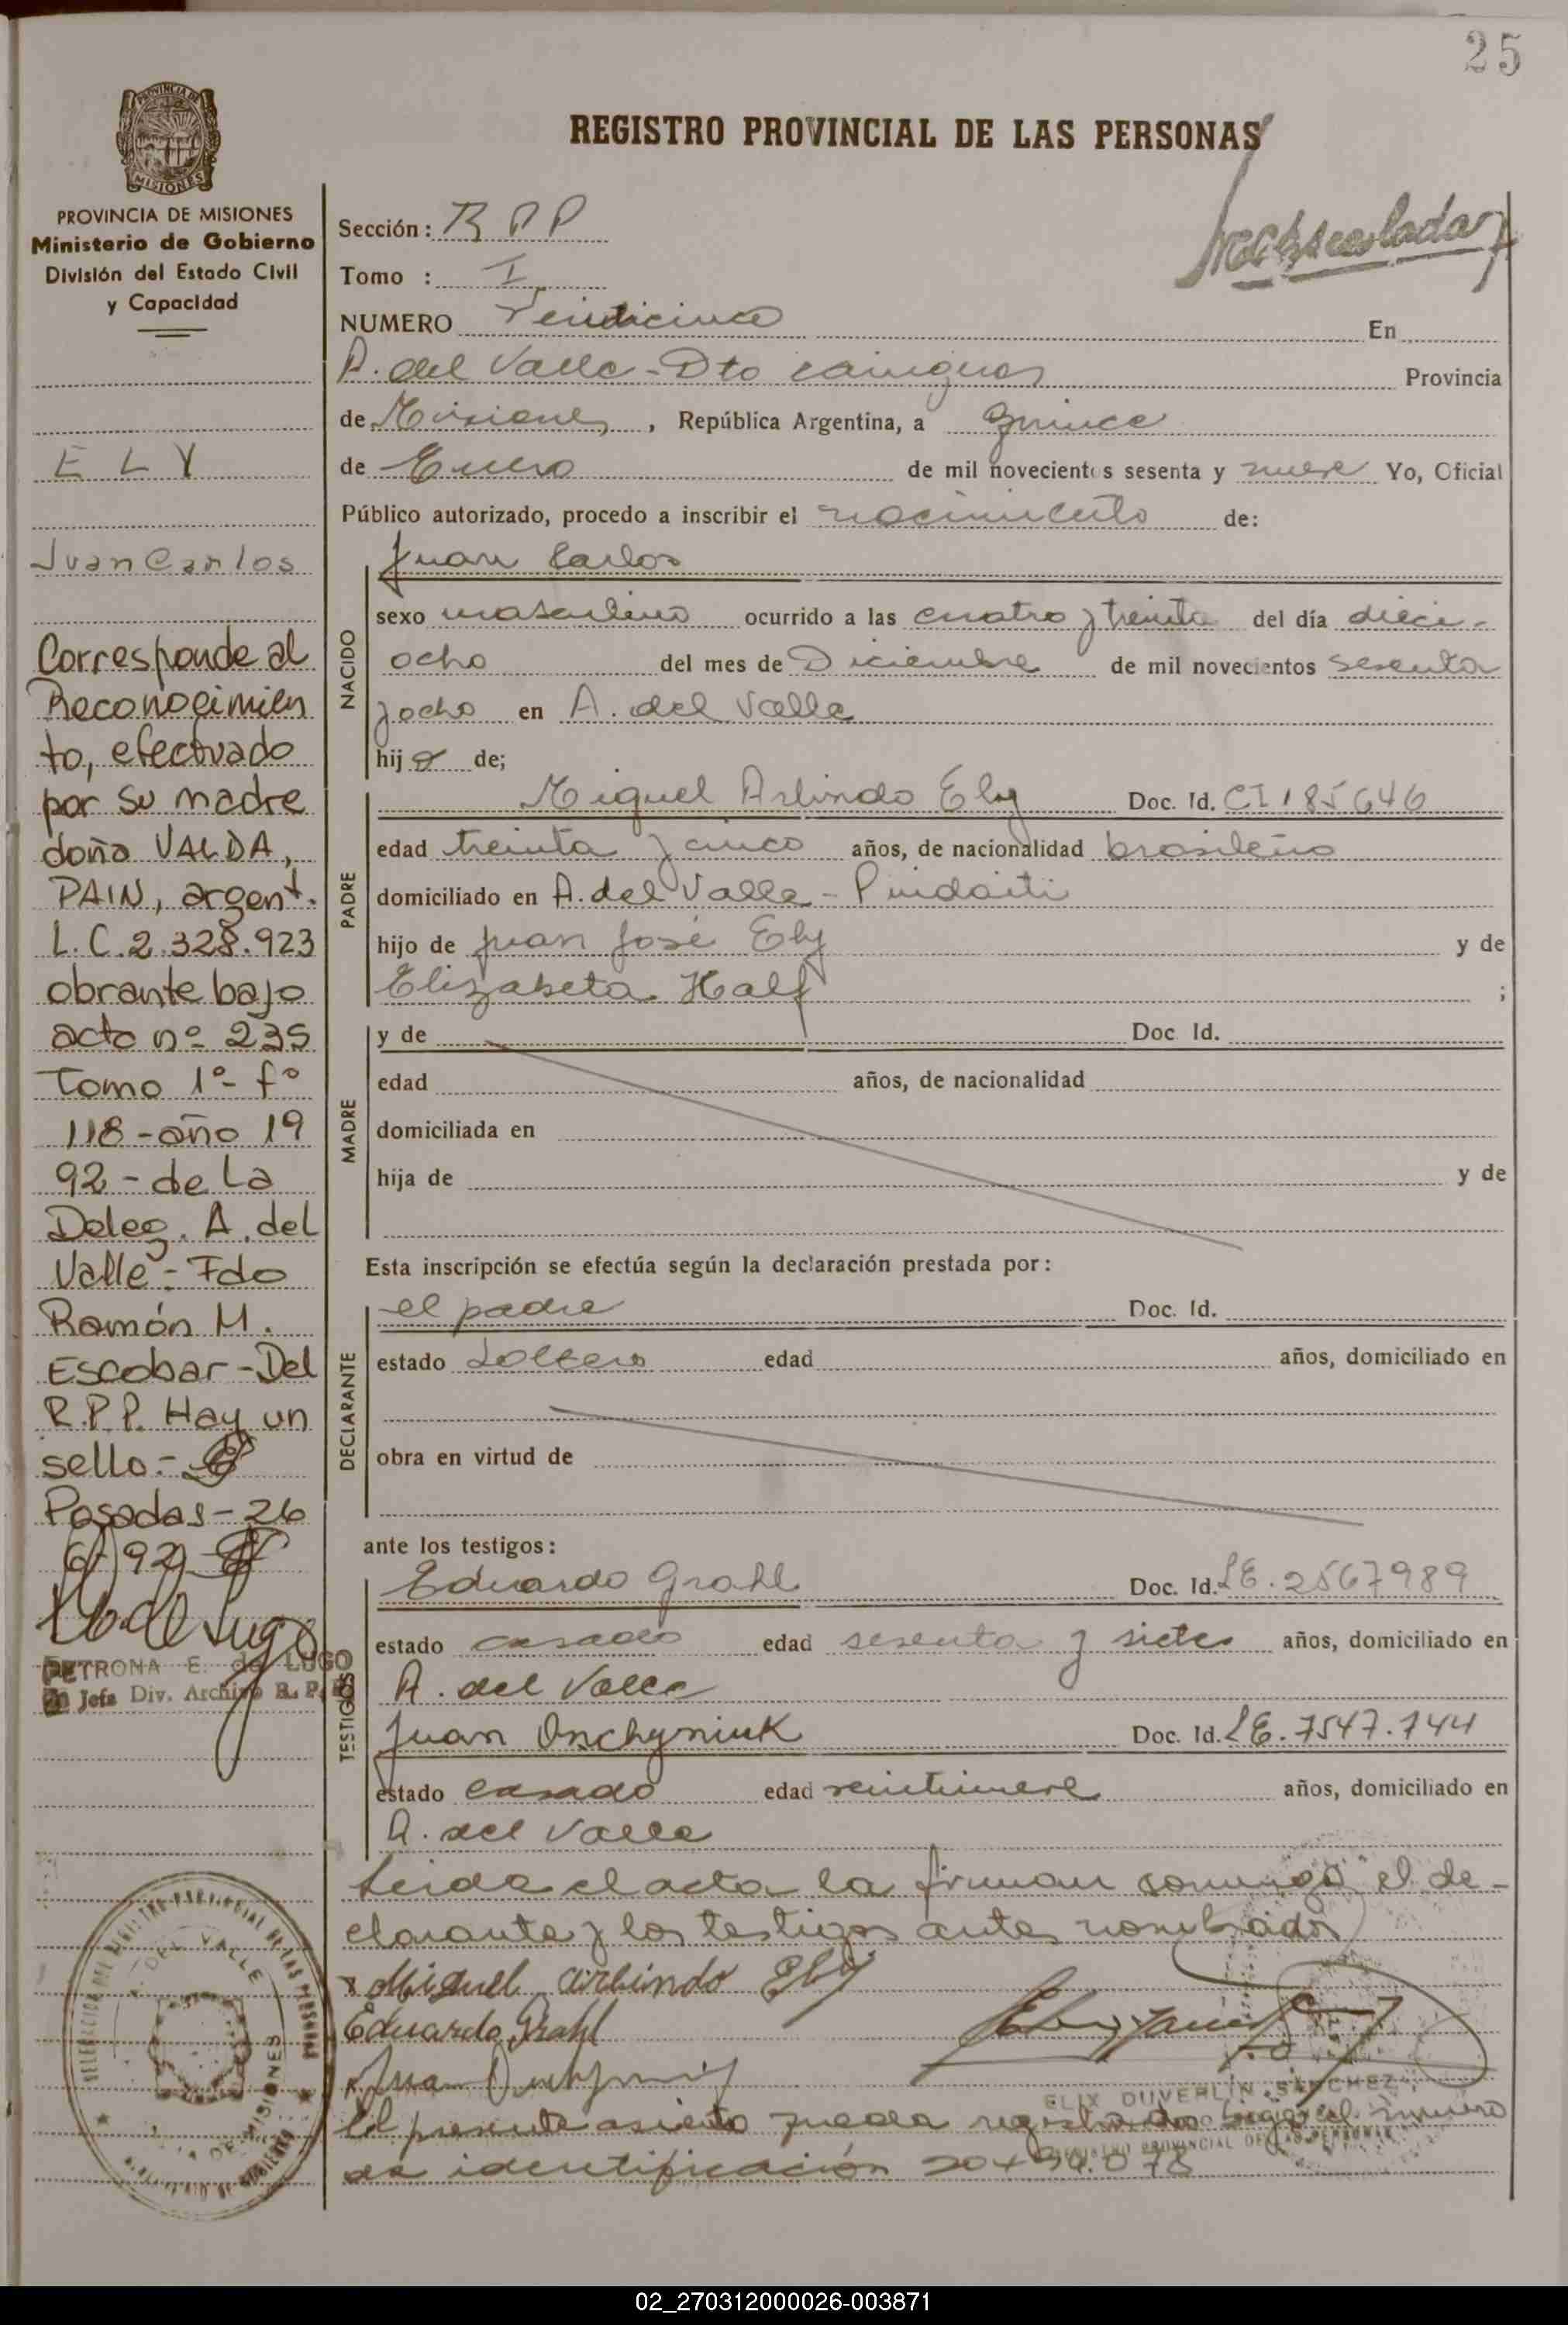 25
REGISTRO PROVINCIAL DE LAS PERSONAS
PROVINCIA DE MISIONES
Ministerio de Gobierno
División del Estado Civil
y Capacidad
ELY
Juan Carlos
Corresponde al
Reconocimien
to, efectuado
por su madre
doña VALDA,
PAIN, argent.
L.C. 2.328.923
obrante bajo
acta nº 235
Tomo 1º- fº
118 - año 19
92 - de La
Deleg. A. del
Valle - Fdo
Ramón M.
Escobar - Del
R.P.P. Hay un
sello.-
Posadas - 26
6) 92)
PETRONA E. de LUGO
Jefa Div. Archivo R. P. P.
Sección: R P P
Tomo : I
NUMERO Veinticinco En
A. del Valle - Dto Cainguas Provincia
de Misiones, República Argentina, a quince
de Enero de mil novecientos sesenta y nueve Yo, Oficial
Público autorizado, procedo a inscribir el nacimiento de:
NACIDO
Juan Carlos
sexo masculino ocurrido a las cuatro y treinta del día dieci-
ocho del mes de Diciembre de mil novecientos sesenta
y ocho en A. del Valle
hijo de;
PADRE
Miguel Arlindo Ely Doc. Id. CI 185646
edad treinta y cinco años, de nacionalidad brasileño
domiciliado en A. del Valle - Pindaiti
hijo de Juan José Ely y de
Elizabeta Half ;
MADRE
y de Doc. Id.
edad años, de nacionalidad
domiciliada en
hija de y de
Esta inscripción se efectúa según la declaración prestada por:
DECLARANTE
el padre Doc. Id.
estado soltero edad años, domiciliado en
obra en virtud de
ante los testigos:
TESTIGOS
Eduardo Grahl Doc. Id. LE. 2567989
estado casado edad sesenta y siete años, domiciliado en
A. del Valle
Juan Onchyniuk Doc. Id. LE. 7547.744
estado casado edad veintinueve años, domiciliado en
A. del Valle
Leida el acta la firman conmigo el de-
clarante y los testigos antes nombrados
x Miguel Arlindo Ely
Eduardo Grahl
DUVERLIN SANCHEZ
REGISTRO PROVINCIAL DE LAS PERSONAS
El presente asiento queda registrado bajo el número
de identificación
DEL VALLE
02_270312000026-003871